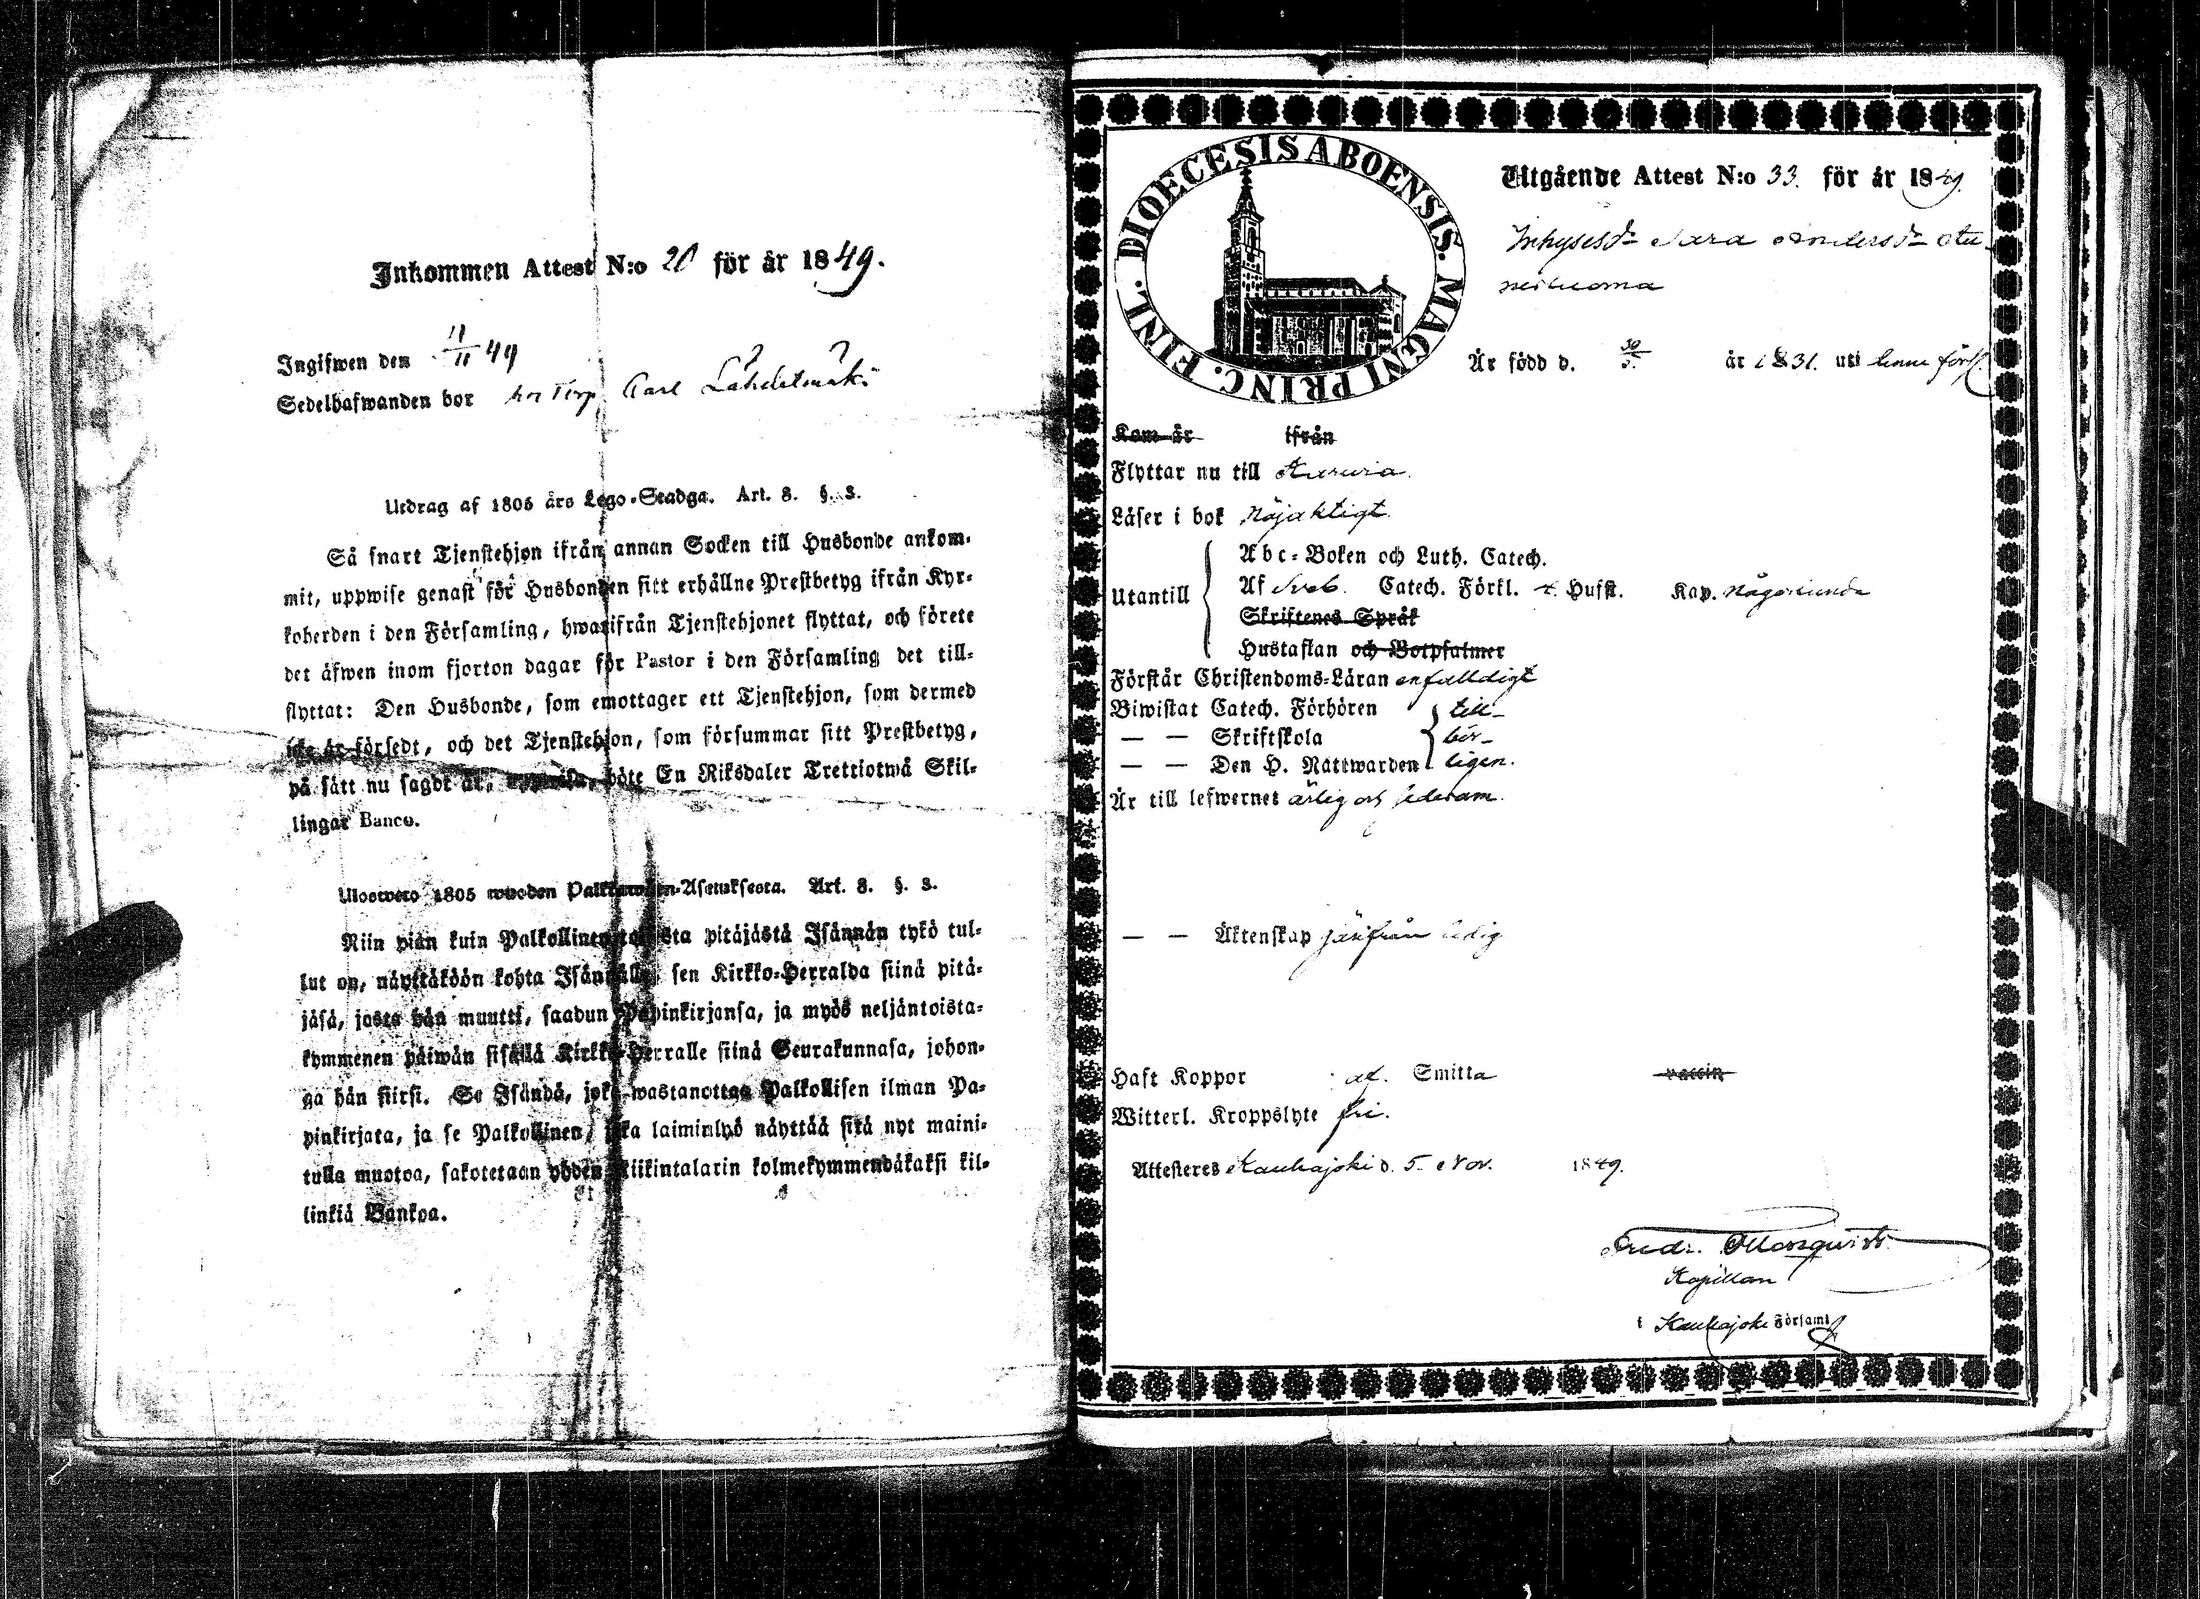 Inkommen Attest N:o 20 för år 1849.
Ingifwen den 11/11 49
Sedelhafwanden bor hos Torp. Carl Lähdetmäki
Utdrag af 1805 års Lego-Stadga. Art. 8. §. 3.
Så snart Tjenstehjon ifrån annan Socken till Husbonde ankom-
mit, uppwise genast för Husbonden sitt erhållne Prestbetyg ifrån Kyr-
koherden i den Församling, hwarifrån Tjenstehjonet flyttat, och förete
det äfwen inom fjorton dagar för Pastor i den Församling det till-
flyttat: Den Husbonde, som emottager ett Tjenstehjon, som dermed
icke är försedt, och det Tjenstehjon, som försummar sitt Prestbetyg,
på sätt nu sagdt är, uppwisa, böte En Riksdaler Trettiotwå Skil-
lingar Banco.
Ulosweto 1805 wuoden Palkkawäen-Asetuksesta. Art. 8. §. 3.
Niin pian kuin Palkollinen toisesta pitäjästä Isännän tykö tul-
lut on, näyttäköön kohta Isännälle, sen Kirkko-Herralda siinä pitä-
jäsä, josta hän muutti, saadun Papinkirjansa, ja myös neljäntoista-
kymmenen päiwän sisällä Kirkko-Herralle siinä Seurakunnasa, johon-
ga hän siirsi. Se Isändä, joka wastanottaa Palkollisen ilman Pa-
pinkirjata, ja se Palkollinen, joka laiminlyö näyttää sitä nyt maini-
tulla muotoa, sakotetaan yhden Riikintalarin kolmekymmendäkaksi kil-
linkiä Bankoa.
DIOECESIS ABOENSIS. MAGNI PRINC. FINL.
Utgående Attest N:o 33. för år 1849.
Inhysesdr Sara Andersdr
Är född d. 30/5. år 1831. uti denne förs.
Kom år ifrån
Flyttar nu till
Läser i bok Nöjaktigt.
Utantill
Abc-Boken och Luth. Catech.
Af Sveb. Catech. Förkl. Husst. Kap. någorlunda
Skriftenes Språk
Hustaflan och Botpsalmer
Förstår Christendoms-Läran enfalldigt
Biwistat Catech. Förhören till-
— — Skriftskola bör-
— — Den H. Nattwarden ligen.
Är till lefwernet ärlig och sedesam.
— — Äktenskap jäfsfrån ledig
Haft Koppor af. Smitta vaccin
Witterl. Kroppslyte fri.
Attesteres Kauhajoki d. 5. Nov. 1849.
Fredr.
Kapellan
i Kauhajoki Församl.